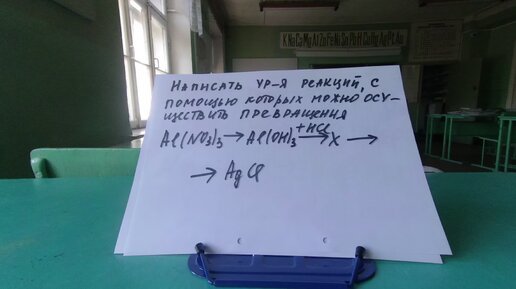 K Na Ca Mg Al Zn Fe Ni Sn Pb H Cu Hg Ag Pt Au
Написать ур-я реакций, с
помощью которых можно осу-
ществить превращения
Al(NO3)3 → Al(OH)3 +HCl → X →
→ AgCl